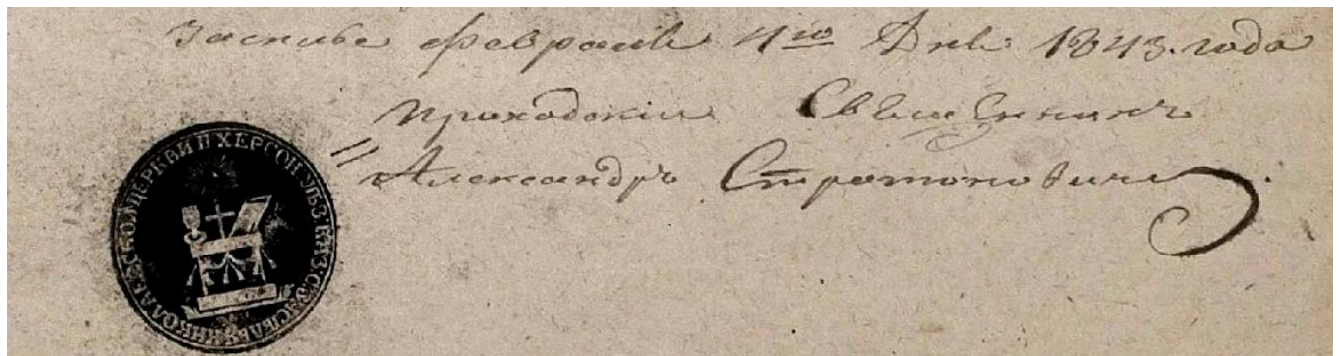 Заселье февраля 4го Дня 1843. года
Приходскій Священникъ
Александръ Стратоновичъ
ЦЕРКВИ П ХЕРСОН УѢЗ